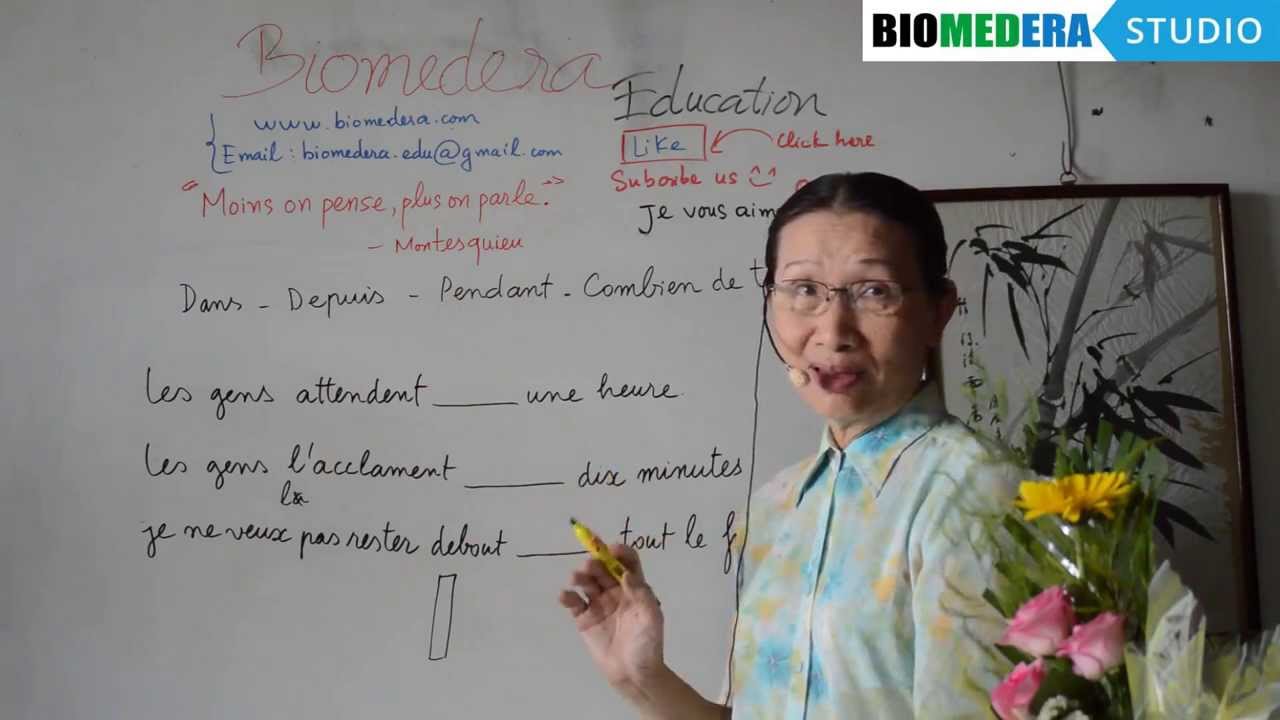 BIOMEDERA STUDIO
Biomedera
Education
www.biomedera.com
Email : biomedera.edu@gmail.com
Like
Click here
Subcribe us
"Moins on pense, plus on parle."
- Montesquieu
Je vous aim
Dans - Depuis - Pendant - Combien de t
les gens attendent ____ une heure.
les gens l'acclament ____ dix minutes
je ne veux pas rester debout ____ tout le f